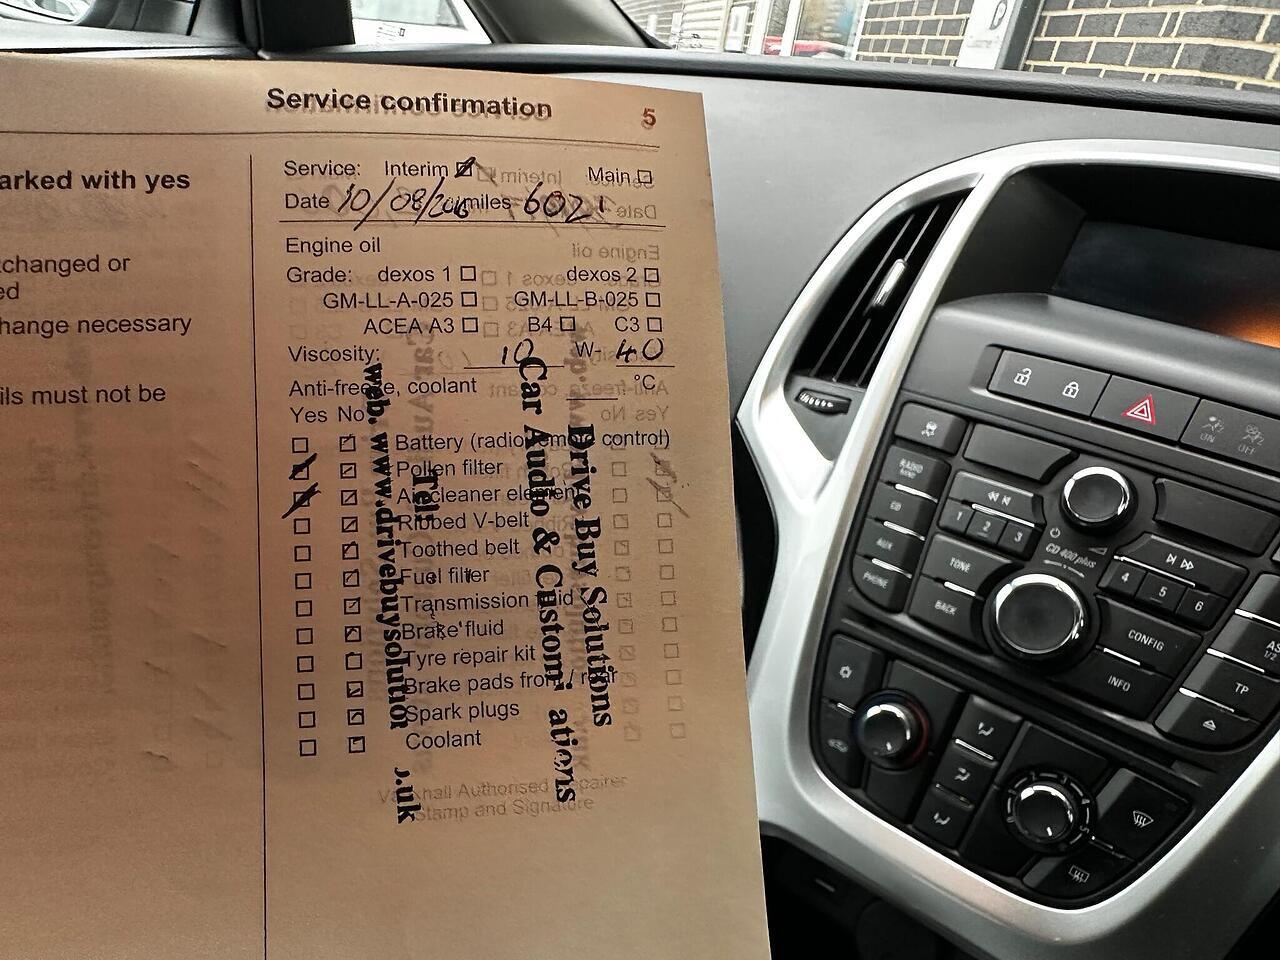 Service confirmation
5
arked with yes
changed or
ed
hange necessary
ils must not be
Service: Interim Main
Date 10/08/2016 miles 6021
Engine oil
Grade: dexos 1 dexos 2
GM-LL-A-025 GM-LL-B-025
ACEA A3 B4 C3
Viscosity: 10 W- 40
Anti-freeze, coolant °C
Yes No
Battery (radio remote control)
Pollen filter
Air cleaner element
Ribbed V-belt
Toothed belt
Fuel filter
Transmission fluid
Brake fluid
Tyre repair kit
Brake pads front / rear
Spark plugs
Coolant
Vauxhall Authorised Repairer
Stamp and Signature
Drive Buy Solutions
Car Audio & Custom ations
Tel:
web. www.drivebuysolution .uk
RADIO
CD
AUX
PHONE
1
2
3
4
5
6
TONE
BACK
CD 400 plus
CONFIG
INFO
TP
AS
1/2
ON
OFF